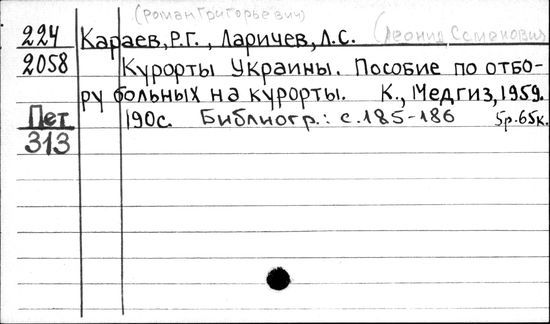 (роман Григорьевич)
224 Караев, Р.Г., Ларичев, Л.С. (Леонид Семенович
2058 Курорты Украины. Пособие по отбо-
ру больных на курорты. К., Медгиз, 1959.
Пет 190с. Библиогр.: с.185-186 5р.65к.
313